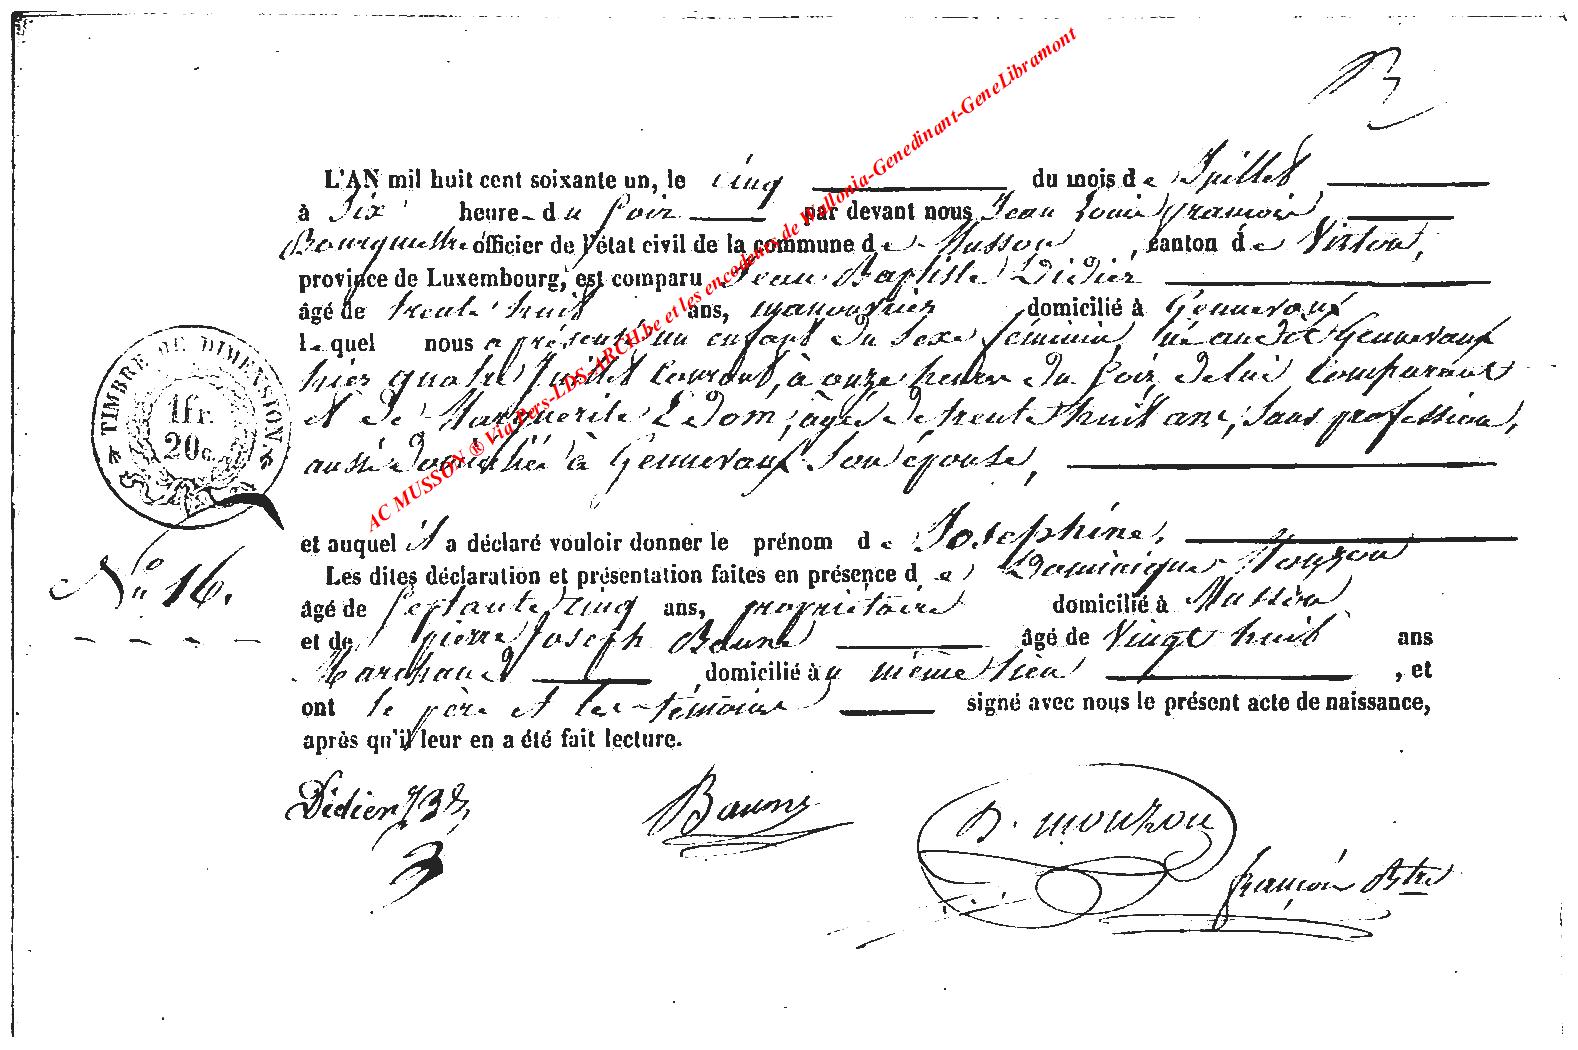 B
L'AN mil huit cent soixante un, le cinq du mois de Juillet
à Six heure du soir par devant nous Jean Louis François
Bourgmestre officier de l'état civil de la commune de Musson, canton de Virton,
province de Luxembourg, est comparu Jean Baptiste Didier
âgé de trente huit ans, manouvrier domicilié à Gennevaux
lequel nous a présenté un enfant du sexe féminin, né audit Gennevaux
hier quatre Juillet courant, à onze heures du soir, de lui comparant
et de Marguerite Ledom, âgée de trente huit ans, sans profession,
aussi domiciliée à Gennevaux son épouse,
et auquel il a déclaré vouloir donner le prénom de Joséphine,
Les dites déclaration et présentation faites en présence de Dominique Mouzon
âgé de septante cinq ans, propriétaire domicilié à Musson
et de pierre Joseph Baune âgé de Vingt huit ans
Marchand domicilié au même lieu, et
ont le père et les témoins signé avec nous le présent acte de naissance,
après qu'il leur en a été fait lecture.
TIMBRE DE DIMENSION
1fr.
20c.
No 16.
Didier J B
Baune
D. mouzon
françois Btre
AC MUSSON ® Via Pers-LDS-ARCH.be et les encodeurs de Wallonia-Genedinant-GeneLibramont